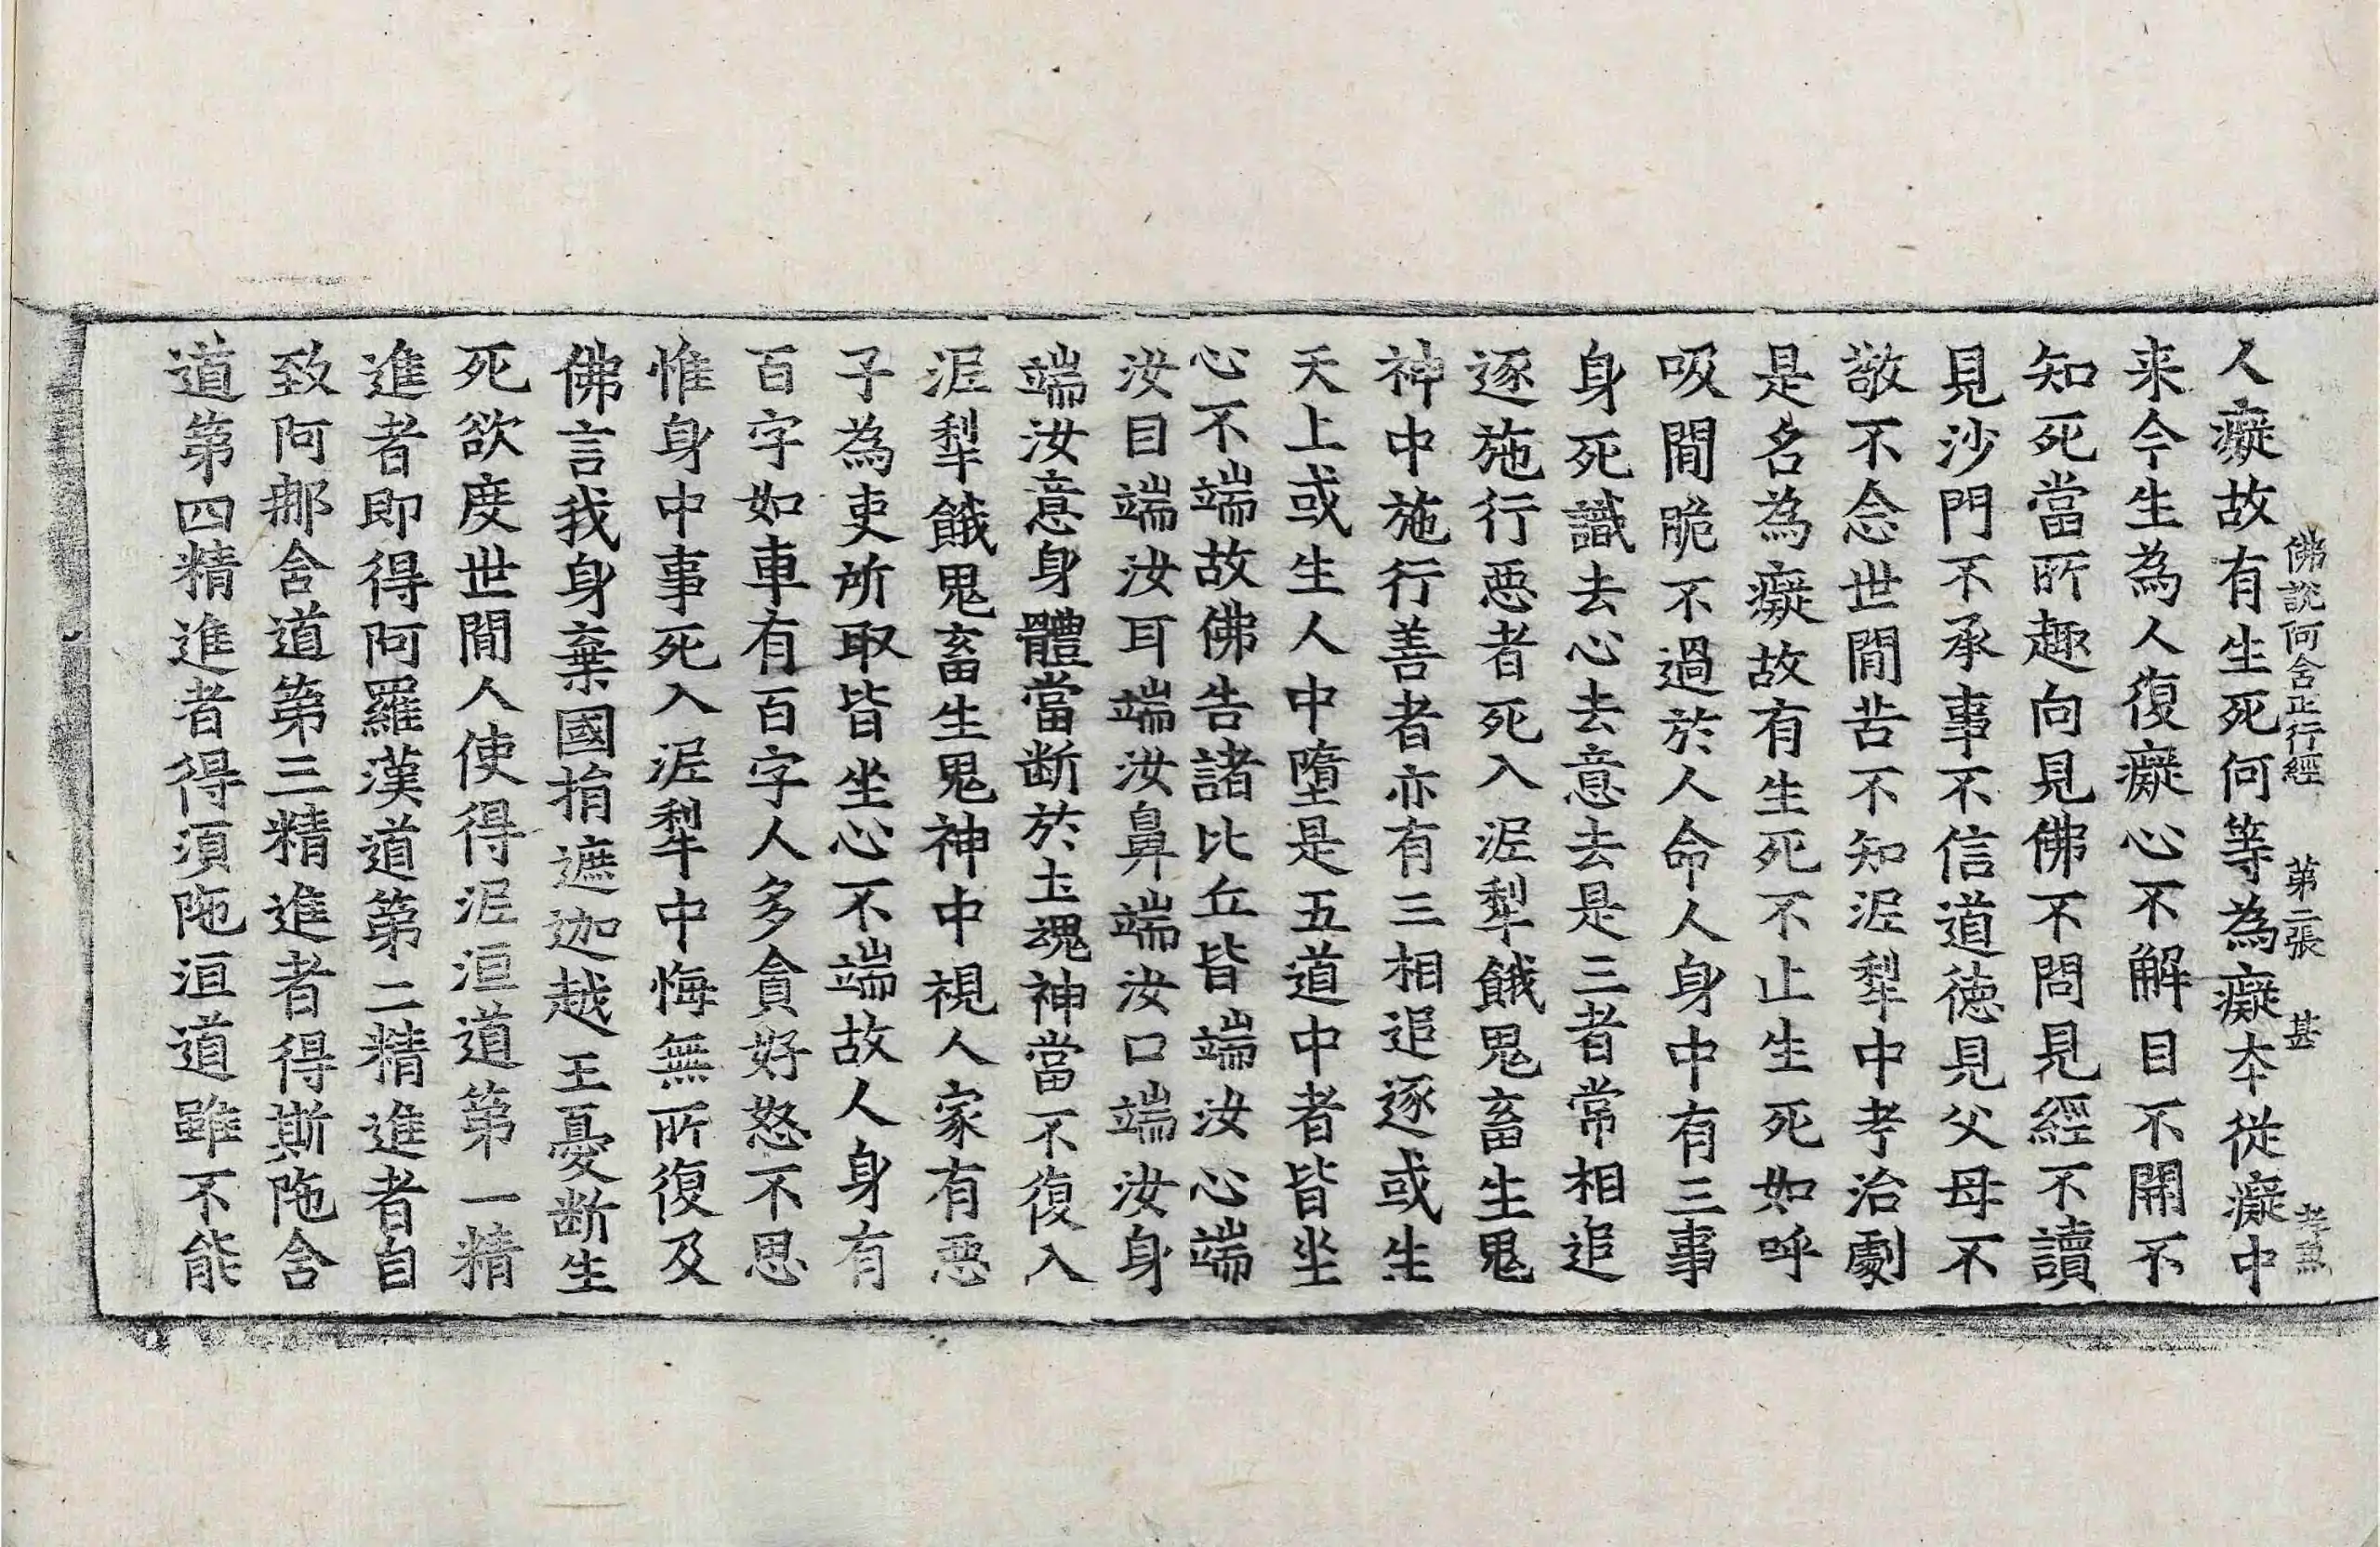 佛說阿含正行經 第二張 甚
人癡故有生死何等為癡本從癡中
来今生為人復癡心不解目不開不
知死當所趣向見佛不問見經不讀
見沙門不承事不信道徳見父母不
敬不念世間苦不知泥犁中考治劇
是名為癡故有生死不止生死如呼
吸間脆不過於人命人身中有三事
身死識去心去意去是三者常相追
逐施行惡者死入泥犁餓鬼畜生鬼
神中施行善者亦有三相追逐或生
天上或生人中墮是五道中者皆坐
心不端故佛告諸比丘皆端汝心端
汝目端汝耳端汝鼻端汝口端汝身
端汝意身體當断於土魂神當不復入
泥犁餓鬼畜生鬼神中視人家有惡
子為吏所取皆坐心不端故人身有
百字如車有百字人多貪好怒不思
惟身中事死入泥犁中悔無所復及
佛言我身棄國捐遮迦越王憂断生
死欲度世間人使得泥洹道第一精
進者即得阿羅漢道第二精進者自
致阿那含道第三精進者得斯陁含
道第四精進者得須陁洹道雖不能